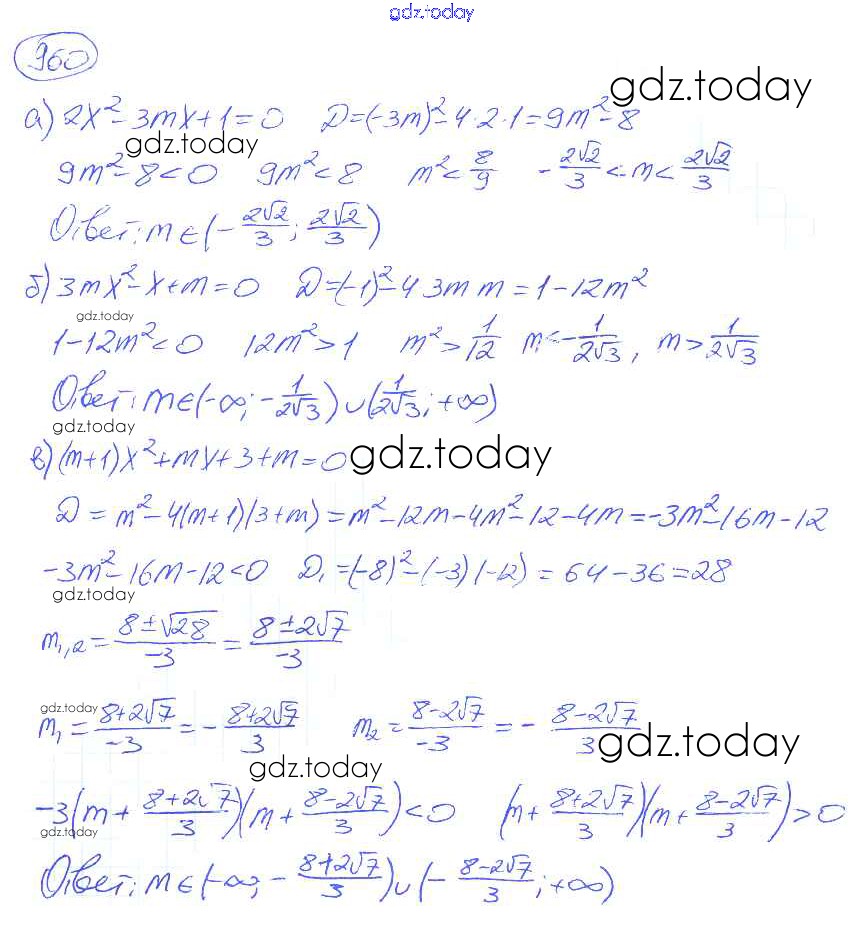 gdz.today
960
gdz.today
а) 2x² - 3mx + 1 = 0   D = (-3m)² - 4·2·1 = 9m² - 8
gdz.today
9m² - 8 < 0   9m² < 8   m² < 8/9   -2√2/3 < m < 2√2/3
Ответ: m ∈ (-2√2/3; 2√2/3)
б) 3mx² - x + m = 0   D = (-1)² - 4 3m m = 1 - 12m²
gdz.today
1 - 12m² < 0   12m² > 1   m² > 1/12   m < -1/2√3, m > 1/2√3
Ответ: m ∈ (-∞; -1/2√3) ∪ (1/2√3; +∞)
gdz.today
в) (m+1)x² + mx + 3 + m = 0 gdz.today
D = m² - 4(m+1)(3+m) = m² - 12m - 4m² - 12 - 4m = -3m² - 16m - 12
-3m² - 16m - 12 < 0   D₁ = (-8)² - (-3)(-12) = 64 - 36 = 28
gdz.today
m₁,₂ = (8±√28)/-3 = (8±2√7)/-3
gdz.today
m₁ = (8+2√7)/-3 = -(8+2√7)/3   m₂ = (8-2√7)/-3 = -(8-2√7)/3
gdz.today
gdz.today
-3(m + (8+2√7)/3)(m + (8-2√7)/3) < 0   (m + (8+2√7)/3)(m + (8-2√7)/3) > 0
gdz.today
Ответ: m ∈ (-∞; -(8+2√7)/3) ∪ (-(8-2√7)/3; +∞)